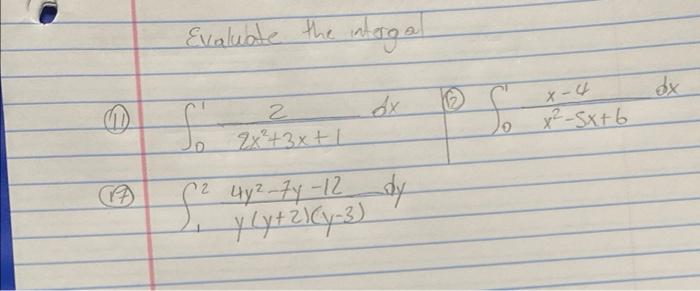 Evaluate the intergal
(11) ∫₀¹ 2/(2x²+3x+1) dx (12) ∫₀¹ (x-4)/(x²-5x+6) dx
(17) ∫₁² (4y²-7y-12)/(y(y+2)(y-3)) dy